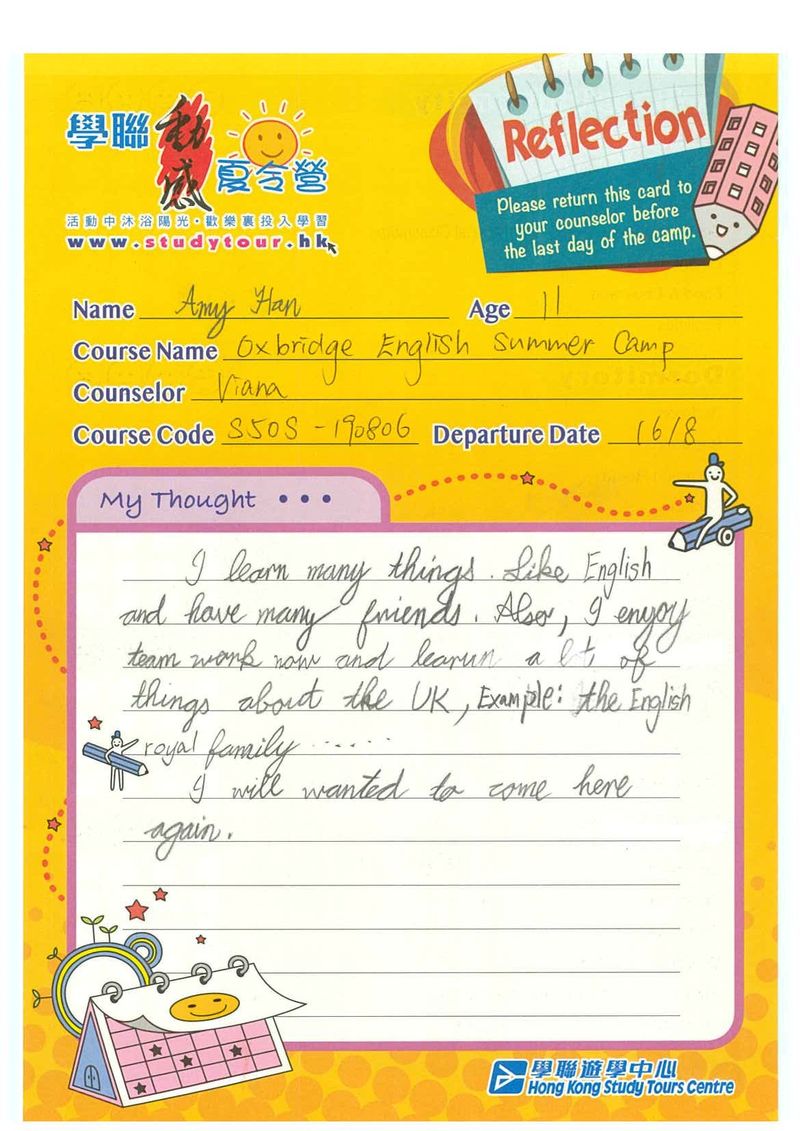 學聯動感夏令營
活動中沐浴陽光・歡樂裏投入學習
www.studytour.hk
Reflection
Please return this card to
your counselor before
the last day of the camp.
Name Amy Han Age 11
Course Name Oxbridge English Summer Camp
Counselor Viana
Course Code S50S-190806 Departure Date 16/8
My Thought • • •
I learn many things. Like English
and have many friends. Also, I enjoy
team work now and learun a lot of
things about the UK, Example: the English
royal family ......
I will wanted to come here
again.
學聯遊學中心
Hong Kong Study Tours Centre